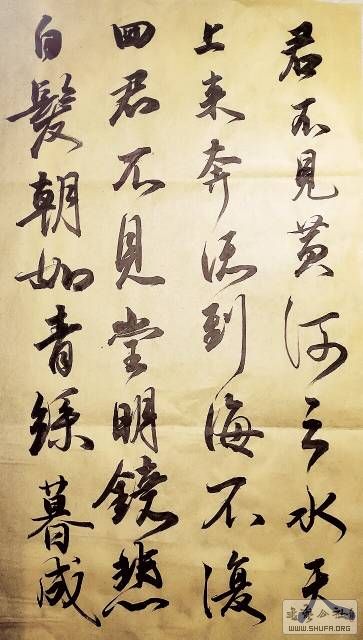 君不見黄河之水天
上来奔流到海不復
回君不見堂明鏡悲
白髮朝如青絲暮成
WWW.SHUFA.ORG